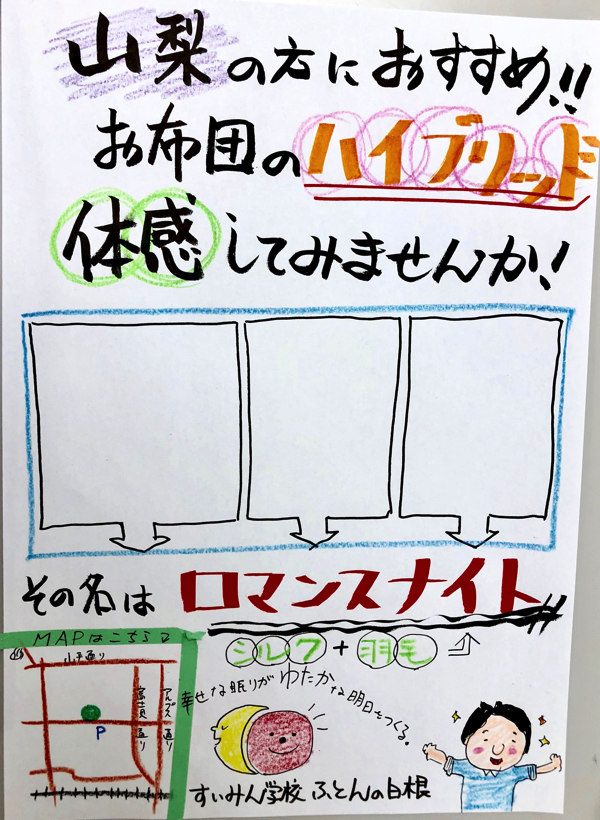 山梨の方におすすめ!!
お布団のハイブリッド
体感してみませんか!
その名は ロマンスナイト
シルク+羽毛
MAPはこちら
小平通り
富士見通り
アルプス通り
P
幸せな眠りがゆたかな明日をつくる。
すいみん学校 ふとんの白根